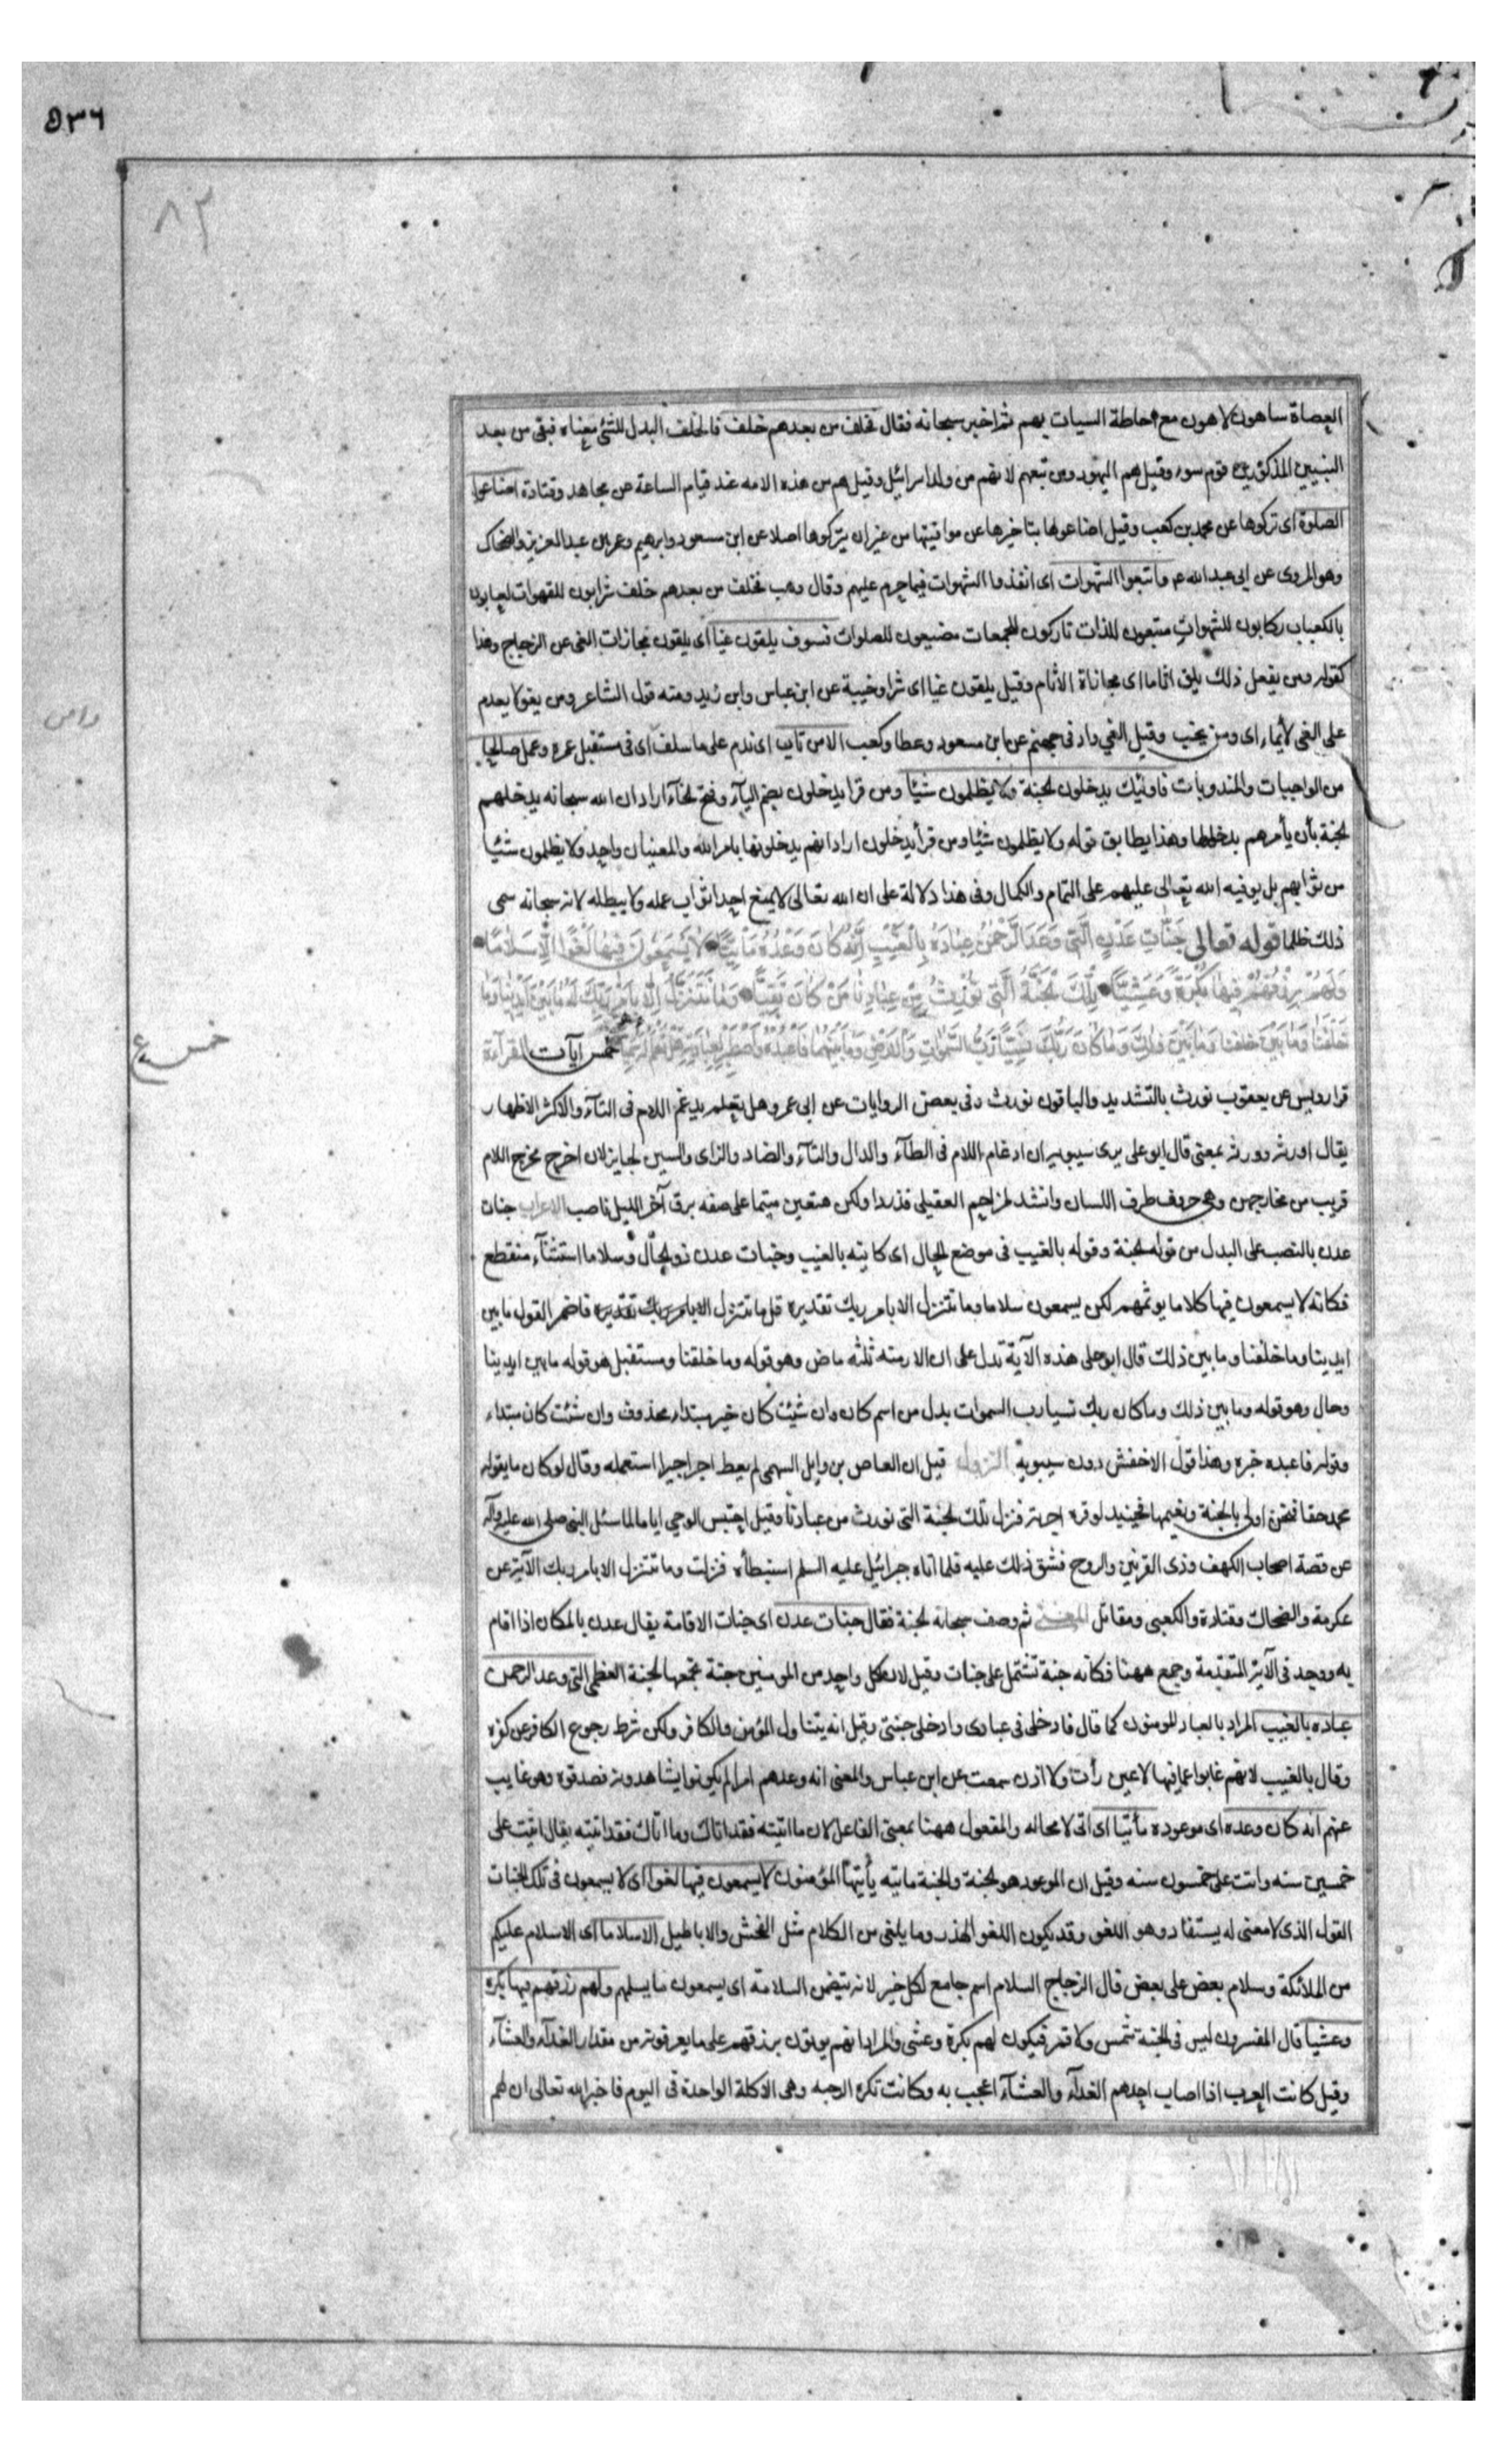 ٥٣٦
٨٣
العصاة ساهون لاهون مع احاطة السيات بهم ثم اخبر سبحانه فقال فخلف من بعدهم خلف فالخلف البدل للشئ معناه فبقى من بعد
النبيين المذكورين قوم سوء وقيل هم اليهود ومن تبعهم لانهم من ولد اسرائيل وقيل هم من هذه الامه عند قيام الساعة عن مجاهد وقتادة اضاعوا
الصلوة اى تركوها عن محمد بن كعب وقيل اضاعوها بتاخيرها عن مواقيتها من غير ان يتركوها اصلا عن ابن مسعود وابرهيم وعمر بن عبد العزيز والضحاك
وهو المروى عن ابى عبد الله عم واتبعوا الشهوات اى انفذوا الشهوات فيما حرم عليهم وقال وهب فخلف من بعدهم خلف شرابون للقهوات لعابون
بالكعباب ركابون للشهوات متبعون للذات تاركون للجمعات مضيعون للصلوات فسوف يلقون غيا اى يلقون مجازات الغى عن الزجاج وهذا
كقوله ومن يفعل ذلك يلق اثاما اى مجاناة الاثام وقيل يلقون غيا اى شرا وخيبة عن ابن عباس وابن زيد ومنه قول الشاعر ومن يغو لا يعدم
على الغى لأيماء اى ومن يخيب وقيل الغي واد فى جهنم عن ابن مسعود وعطا وكعب الا من تاب اى ندم على ما سلف اى فى مستقبل عمره وعمل صالحا
من الواجبات والمندوبات فاولئك يدخلون لجنة ولا يظلمون شيئا ومن قرا يدخلون بضم اليآء وفتح لخآء اراد ان الله سبحانه يدخلهم
لجنة بأن يأمرهم بدخلها وهذا يطابق قوله ولا يظلمون شيئا ومن قرأ يدخلون اراد انهم يدخلونها بامر الله والمعنيان واحد ولا يظلمون شئيا
من ثوابهم بل يوفيه الله تعالى عليهم على التمام والكمال وفى هذا دلالة على ان الله تعالى لا يمنع احدا ثواب عمله ولا يبطله لانه سبحانه سمى
ذلك ظلما قوله تعالى جَنّاتِ عَدْنٍ الَّتِى وَعَدَ الرَّحْمٰنُ عِبَادَهُ بِالْغَيْبِ اِنَّهُ كَانَ وَعْدُهُ مَأتِيًّا لَا يَسْمَعُونَ فِيهَا لَغْوًا اِلَّا سَلَامًا
وَلَهُمْ رِزْقُهُمْ فِيهَا بُكْرَةً وَعَشِيًّا تِلْكَ لْجَنَّةُ الَّتِى نُوْرِثُ مِنْ عِبَادِنَا مَنْ كَانَ تَقِيًّا وَمَا نَتَنَزَّلُ اِلَّا بِاَمْرِ رَبِّكَ لَهُ مَا بَيْنَ اَيْدِينَا وَمَا
خَلْفَنَا وَمَا بَيْنَ خلفنا وَمَا بَيْنَ ذٰلِكَ وَمَا كَانَ رَبُّكَ نَسِيًّا رَبُّ السَّمٰوَاتِ وَالْاَرْضِ وَمَا بَيْنَهُمَا فَاعْبُدْهُ وَاصْطَبِرْ لِعِبَادَتِهِ هَلْ تَعْلَمُ لَهُ سَمِيًّا خمس آيات القراءة
خمس ع
قرا رويس عن يعقوب نورث بالتشديد والباقون نورث وفى بعض الروايات عن ابى عمرو هل تعلم يدغم اللام فى التآء والاكثر الاظهار
يقال اورثه وورثه بمعنى قال ابو على يرى سيبويه ان ادغام اللام فى الطآء والدال والتآء والضاد والزاى والسين لجايز لان اخرج مخرج اللام
قريب من مخارجهن وهى حروف طرف اللسان وانشد لمزاحم العقيلى فذر ذا ولكن هتعين متيما على صفه برق آخر الليل ناصب الاعراب جنات
عدن بالنصب على البدل من قوله لجنة وقوله بالغيب فى موضع لحال اى كاينه بالغيب وجنات عدن ذو لحال وسلاما استثنآء منقطع
فكانه لا يسمعون فيها كلاما يوثمهم لكن يسمعون سلاما وما نتنزل الا بامر ربك تقديره قل ما نتنزل الا بامر ربك تقديره فاضمر القول ما بين
ايدينا وما خلفنا وما بين ذلك قال ابو على هذه الآية تدل على ان الازمنه ثلثه ماض وهو قوله وما خلفنا ومستقبل هو قوله ما بين ايدينا
وحال وهو قوله وما بين ذلك وما كان ربك نسيا رب السموات بدل من اسم كان وان شيئت كان خبر مبتداء محذوف وان شئت كان مبتداء
وقوله فاعبده خبره وهذا قول الاخفش دون سيبويه النزول قيل ان العاص بن وايل السهمى لم يعط اجر اجيرا استعمله وقال لو كان ما يقوله
محمد حقا فنحن اولى بالجنة ونعيمها فحينيد اوفره اجره فنزل تلك لجنة التى نورث من عبادنا وقيل احتبس الوحي اياما لما سئل النبى صلى الله عليه وآله
عن قصة اصحاب الكهف وذى القرنين والروح فشق ذلك عليه فلما اتاه جبرائيل عليه السلم استبطأه فنزلت وما نتنزل الا بامر ربك الآية عن
عكرمة والضحاك وقتادة والكعبى ومقاتل المعنى ثم وصف سبحانه لجنة فقال جنات عدن اى جنات الاقامة يقال عدن بالمكان اذا اقام
به ووحد فى الآية المتقدمة وجمع ههنا فكانه جنة تشتمل على جنات وقيل لان لكل واحد من المومنين جنة تجمعها لجنة العظمى التى وعد الرحمن
عباده بالغيب المراد بالعباد المومنون كما قال فادخلى فى عبادى وادخلى جنتى وقيل انه يتناول المؤمن والكافر ولكن شرط رجوع الكافر عن كفره
وقال بالغيب لانهم غابوا عما فيها لا عين رأت ولا اذن سمعت عن ابن عباس والمعنى انه وعدهم امرا لم يكونوا يشاهدونه فصدقوه وهو غايب
عنهم انه كان وعده اى موعوده مأتيا اى اتى لا محاله والمفعول ههنا بمعنى الفاعل لان ما اتيته فقد اتاك وما اتاك فقد اتيته يقال اتيت على
خمسين سنه واتت على خمسون سنه وقيل ان الموعود هو لجنة ولجنة ماتيه يأتيها المؤمنون لا يسمعون فيها لغوا اى لا يسمعون فى تلك الجنات
القول الذى لا معنى له يستفاد وهو اللغو وقد يكون اللغو الهذر وما يلغى من الكلام مثل الفحش والاباطيل الا سلاما اى الا سلام عليكم
من الملائكة وسلام بعض على بعض قال الزجاج السلام اسم جامع لكل خير لانه يتضمن السلامة اى يسمعون ما يسلمهم ولهم رزقهم فيها بكرة
وعشيا قال المفسرون ليس فى الجنة شمس ولا قمر فيكون لهم بكرة وعشى والمراد انهم يوتون برزقهم على ما يعرفونه من مقدار الغدآء والعشآء
وقيل كانت العرب اذا اصاب احدهم الغدآء والعشآء اعجب به وكانت تكره الوجبه وهى الاكلة الواحدة فى اليوم فاخبر الله تعالى ان لهم